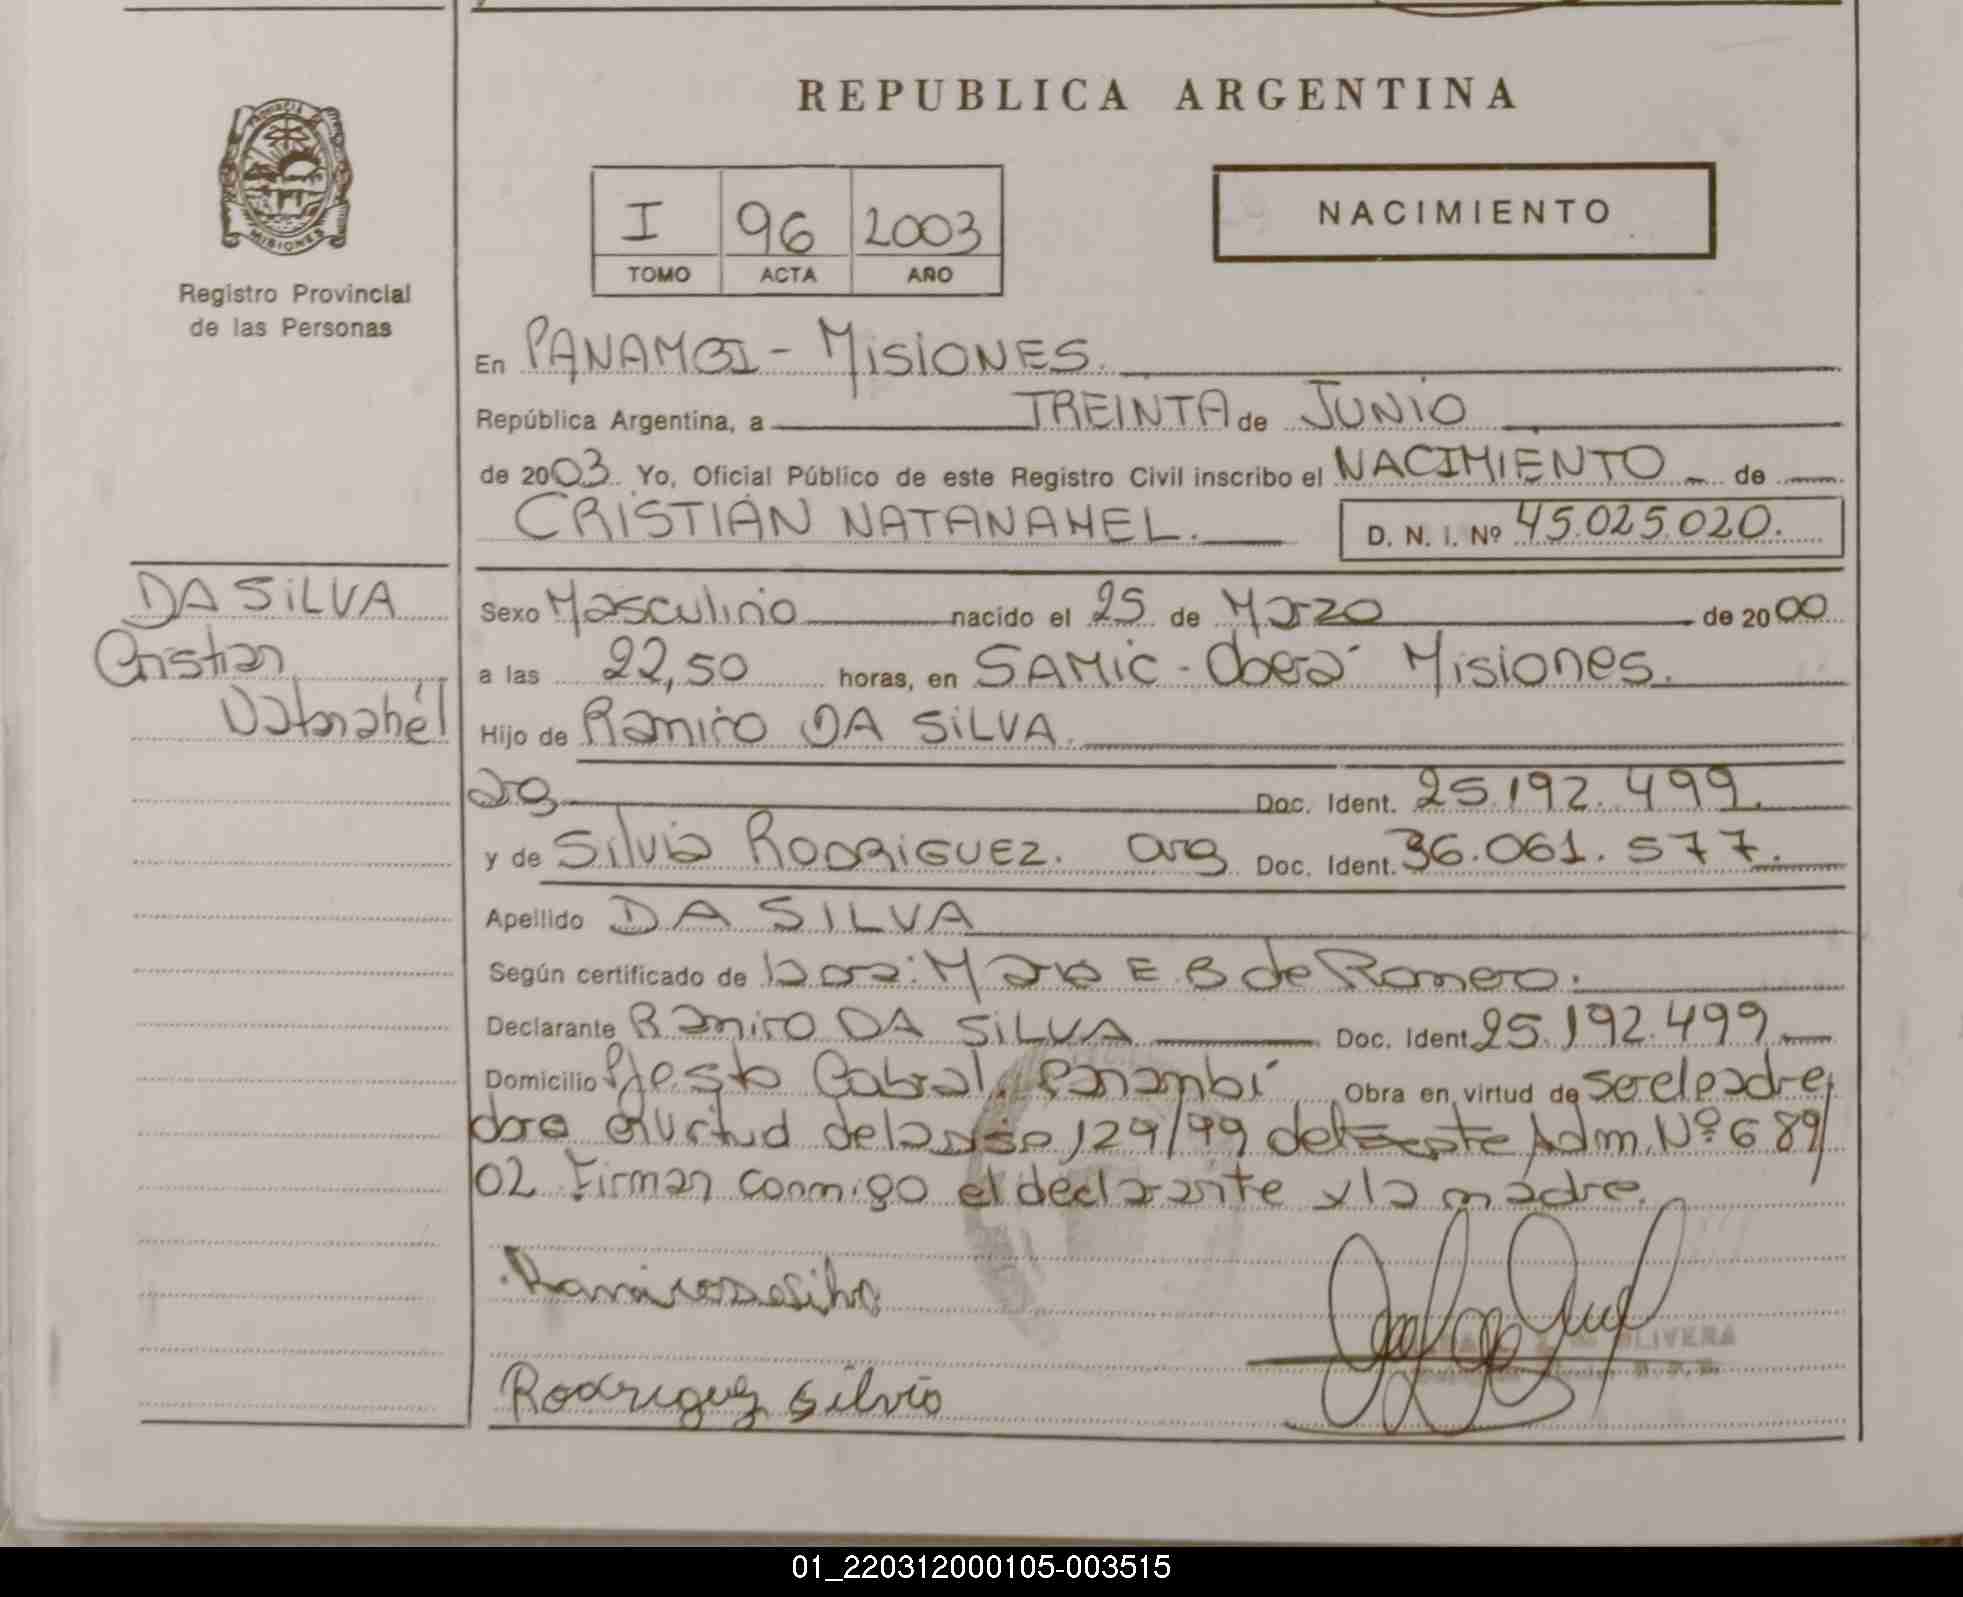 REPUBLICA ARGENTINA
PROVINCIA DE MISIONES
Registro Provincial
de las Personas
I 96 2003
TOMO ACTA AÑO
NACIMIENTO
En PANAMBI - MISIONES.
República Argentina, a TREINTA de JUNIO
de 2003. Yo, Oficial Público de este Registro Civil inscribo el NACIMIENTO de
CRISTIAN NATANAHEL. D. N. I. Nº 45.025.020.
DA SILVA
Cristian
Natanahél
Sexo Masculino nacido el 25 de Marzo de 2000
a las 22,50 horas, en SAMIC - Oberá Misiones.
Hijo de Ramiro DA SILVA.
arg Doc. Ident. 25.192.499.
y de Silvia RODRIGUEZ. arg Doc. Ident. 36.061.577.
Apellido DA SILVA
Según certificado de E. B de Romero.
Declarante Ramiro DA SILVA Doc. Ident. 25.192.499
Domicilio Cabral, Panambí Obra en virtud de ser el padre
virtud de 129/99 Adm. Nº 689/
02 Firman conmigo el declarante y la madre.
Ramiro Da Silva
Rodriguez Silvia
OLIVERA
01_220312000105-003515